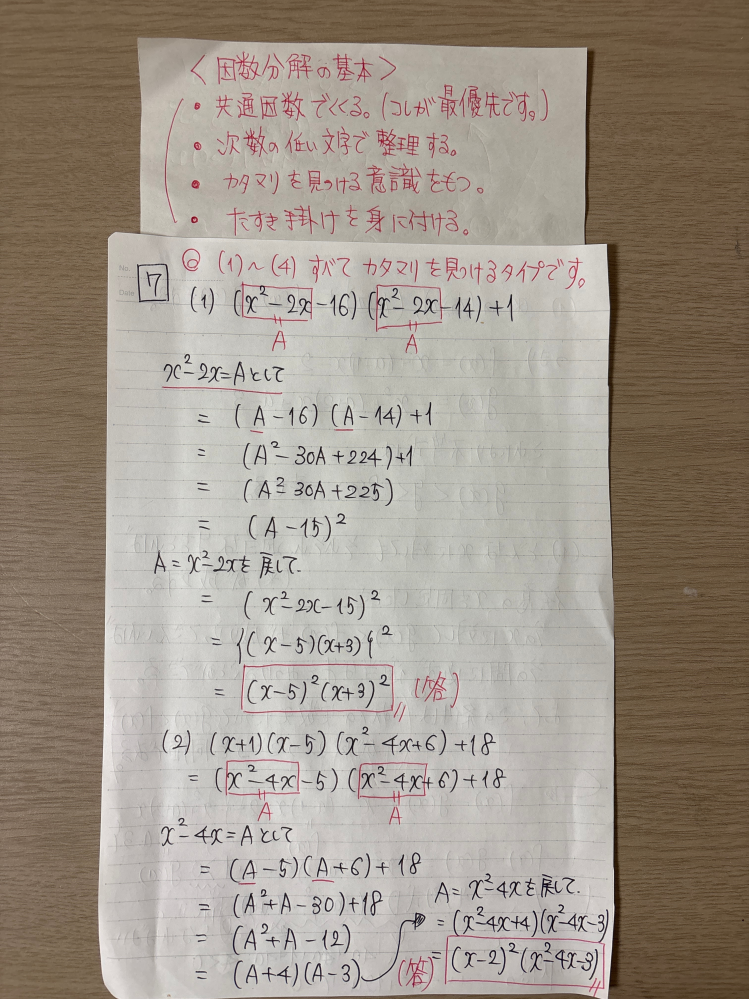 <因数分解の基本>
・共通因数でくくる。(コレが最優先です。)
・次数の低い文字で整理する。
・カタマリを見つける意識をもつ。
・たすき掛けを身に付ける。
No.
Date
◎ (1)~(4) すべて カタマリを見つけるタイプです。
7
(1) (x²-2x-16)(x²-2x-14)+1
= A
= A
x²-2x=Aとして
= (A-16)(A-14)+1
= (A²-30A+224)+1
= (A²-30A+225)
= (A-15)²
A=x²-2xを戻して.
= (x²-2x-15)²
= {(x-5)(x+3)}²
= (x-5)²(x+3)² (答)
(2) (x+1)(x-5)(x²-4x+6)+18
= (x²-4x-5)(x²-4x+6)+18
= A
= A
x²-4x=Aとして
= (A-5)(A+6)+18
= (A²+A-30)+18
= (A²+A-12)
= (A+4)(A-3)
A=x²-4xを戻して.
= (x²-4x+4)(x²-4x-3)
(答) = (x-2)²(x²-4x-3)